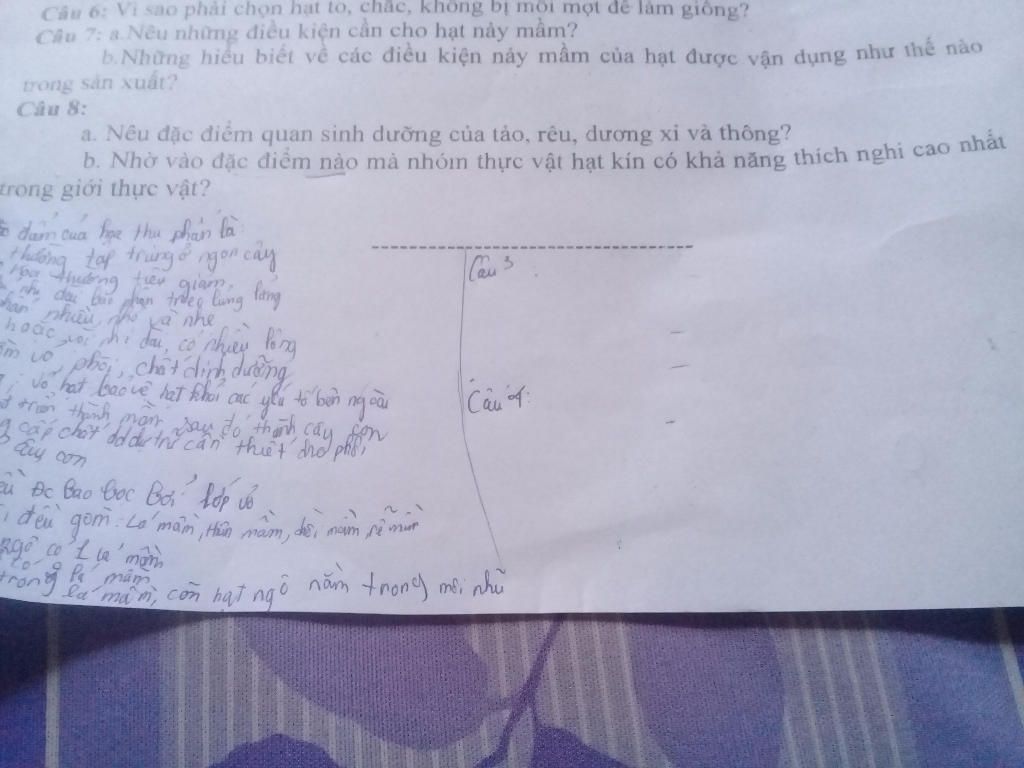 Câu 6: Vì sao phải chọn hạt to, chắc, không bị mối mọt để làm giống?
Câu 7: a.Nêu những điều kiện cần cho hạt nảy mầm?
b.Những hiểu biết về các điều kiện nảy mầm của hạt được vận dụng như thế nào
trong sản xuất?
Câu 8:
a. Nêu đặc điểm quan sinh dưỡng của tảo, rêu, dương xỉ và thông?
b. Nhờ vào đặc điểm nào mà nhóm thực vật hạt kín có khả năng thích nghi cao nhất
trong giới thực vật?
của hoa thụ phấn là
thường tập trung ở ngọn cây
hoa thường tiêu giảm,
dài bao phấn treo lủng lẳng
nhiều, nhỏ và nhẹ
hoặc vòi nhị dài, có nhiều lông
vỏ, phôi, chất dinh dưỡng
vỏ hạt bảo vệ hạt khỏi các yếu tố bên ngoài
triển thành mầm sau đó thành cây con
cấp chất dự trữ cần thiết cho phôi
cây con
Đc Bao bọc Bởi lớp vỏ
đều gồm: Lá mầm, thân mầm, chồi mầm, rễ mầm
ngô có 1 lá mầm
có lá mầm
trong lá mầm, còn hạt ngô nằm trong nôi nhũ
Câu 3 :
Câu 4: